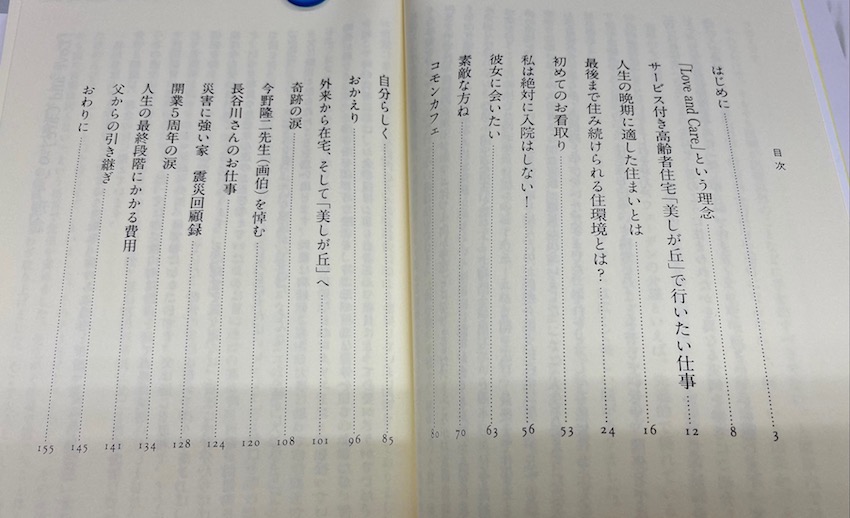 目次
はじめに……3
「Love and Care」という理念……8
サービス付き高齢者住宅「美しが丘」で行いたい仕事……12
人生の晩期に適した住まいとは……16
最後まで住み続けられる住環境とは？……24
初めてのお看取り……53
私は絶対に入院はしない！……56
彼女に会いたい……63
素敵な方ね……70
コモンカフェ……80
自分らしく……85
おかえり……96
外来から在宅、そして「美しが丘」へ……101
奇跡の涙……108
今野隆二先生（画伯）を悼む……120
長谷川さんのお仕事……124
災害に強い家　震災回顧録……128
開業5周年の涙……134
人生の最終段階にかかる費用……141
父からの引き継ぎ……145
おわりに……155